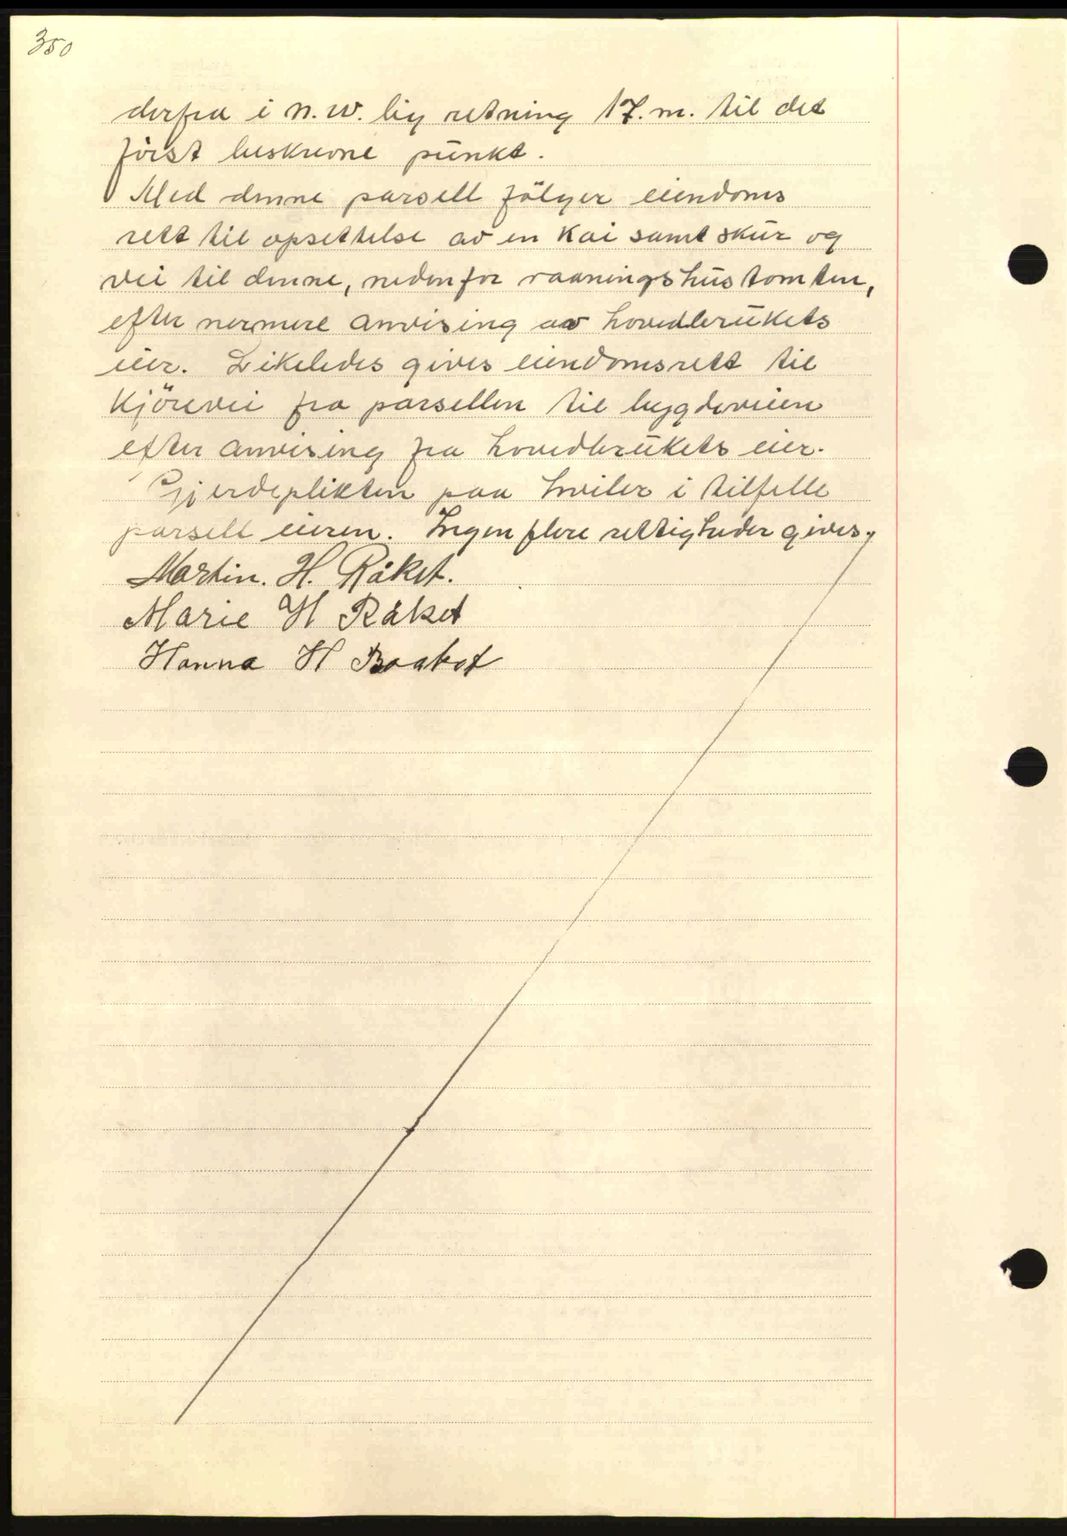 350
derfra i n.w. lig retning 17.m. til det
först beskrevne punkt.
Med denne parsell fölger eiendoms
rett til opsettelse av en Kai samt skur og
vei til denne, nedenfor vaaningshustomten,
efter nermere anvising av hovedbrukets
eier. Likeledes gives eiendomsrett til
Kjörevei fra parsellen til bygdeveien
efter anvising fra hovedbrukets eier.
Gjerdeplikten paa hviler i tilfelle
parsell eieren. Ingen flere rettigheder gives.
Martin. H. Råket.
Marie H Råket
Hanna H Raaket